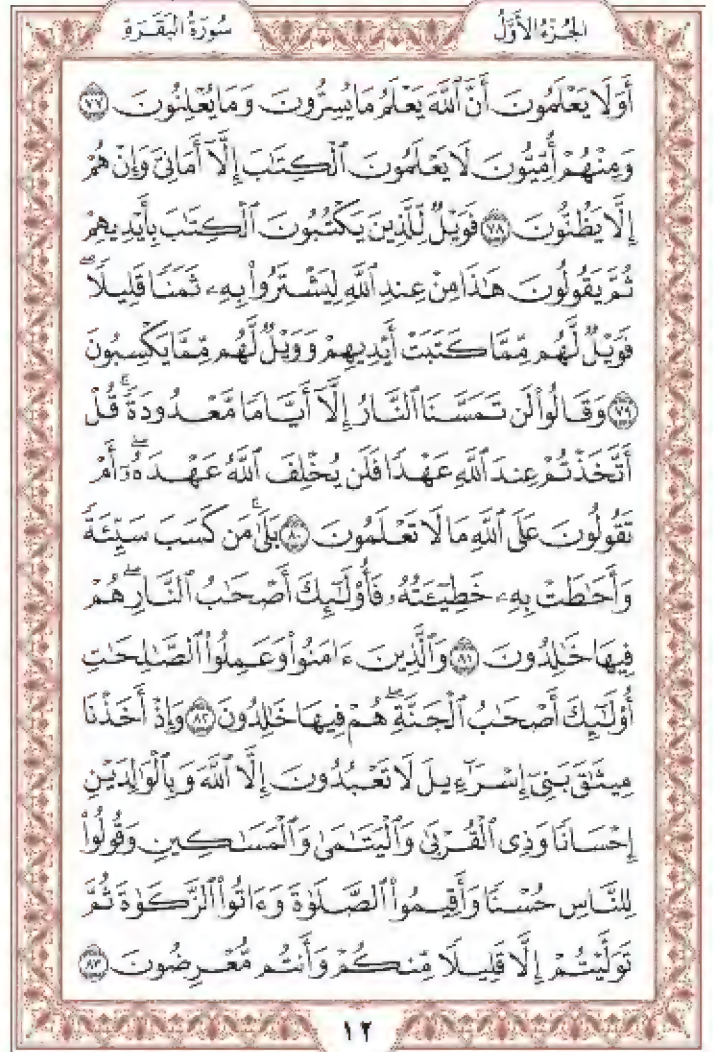 الجُزْءُ الأَوَّلُ
سُورَةُ الْبَقَرَةِ
أَوَلَا يَعْلَمُونَ أَنَّ ٱللَّهَ يَعْلَمُ مَا يُسِرُّونَ وَمَا يُعْلِنُونَ ٧٧
وَمِنْهُمْ أُمِّيُّونَ لَا يَعْلَمُونَ ٱلْكِتَٰبَ إِلَّآ أَمَانِىَّ وَإِنْ هُمْ
إِلَّا يَظُنُّونَ ٧٨ فَوَيْلٌ لِّلَّذِينَ يَكْتُبُونَ ٱلْكِتَٰبَ بِأَيْدِيهِمْ
ثُمَّ يَقُولُونَ هَٰذَا مِنْ عِندِ ٱللَّهِ لِيَشْتَرُوا۟ بِهِۦ ثَمَنًا قَلِيلًا ۖ
فَوَيْلٌ لَّهُم مِّمَّا كَتَبَتْ أَيْدِيهِمْ وَوَيْلٌ لَّهُم مِّمَّا يَكْسِبُونَ
٧٩ وَقَالُوا۟ لَن تَمَسَّنَا ٱلنَّارُ إِلَّآ أَيَّامًا مَّعْدُودَةً ۚ قُلْ
أَتَّخَذْتُمْ عِندَ ٱللَّهِ عَهْدًا فَلَن يُخْلِفَ ٱللَّهُ عَهْدَهُۥٓ ۖ أَمْ
تَقُولُونَ عَلَى ٱللَّهِ مَا لَا تَعْلَمُونَ ٨٠ بَلَىٰ ۚ مَن كَسَبَ سَيِّئَةً
وَأَحَٰطَتْ بِهِۦ خَطِيٓـَٔتُهُۥ فَأُو۟لَٰٓئِكَ أَصْحَٰبُ ٱلنَّارِ ۖ هُمْ
فِيهَا خَٰلِدُونَ ٨١ وَٱلَّذِينَ ءَامَنُوا۟ وَعَمِلُوا۟ ٱلصَّٰلِحَٰتِ
أُو۟لَٰٓئِكَ أَصْحَٰبُ ٱلْجَنَّةِ ۖ هُمْ فِيهَا خَٰلِدُونَ ٨٢ وَإِذْ أَخَذْنَا
مِيثَٰقَ بَنِىٓ إِسْرَٰٓءِيلَ لَا تَعْبُدُونَ إِلَّا ٱللَّهَ وَبِٱلْوَٰلِدَيْنِ
إِحْسَانًا وَذِى ٱلْقُرْبَىٰ وَٱلْيَتَٰمَىٰ وَٱلْمَسَٰكِينِ وَقُولُوا۟
لِلنَّاسِ حُسْنًا وَأَقِيمُوا۟ ٱلصَّلَوٰةَ وَءَاتُوا۟ ٱلزَّكَوٰةَ ثُمَّ
تَوَلَّيْتُمْ إِلَّا قَلِيلًا مِّنكُمْ وَأَنتُم مُّعْرِضُونَ ٨٣
١٢